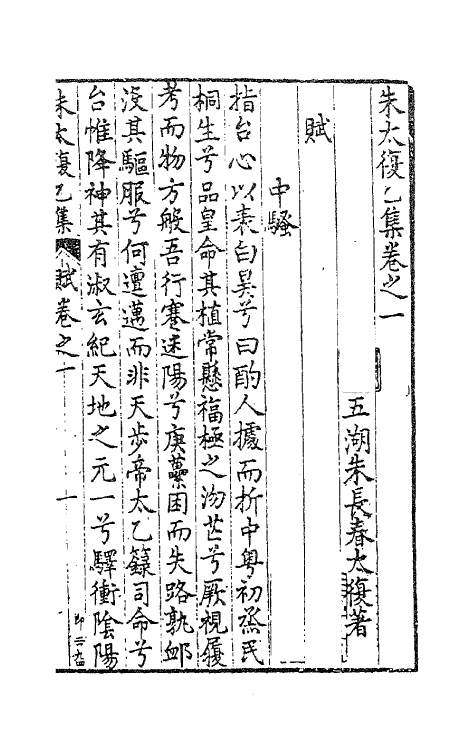 朱太復乙集卷之一
五湖朱長春太復著
賦
中騷
指台心以表白昊兮曰酌人據而折中粵初烝民
桐生兮品皇命其植常懸福極之沕芒兮厥視履
考而物方般吾行蹇迷陽兮庚蘽困而失路孰卹
沒其驅服兮何邅邁而非天步帝太乙籙司命兮
台惟降神其有淑玄紀天地之元一兮驛衝陰陽
朱太復乙集 賦卷之一 一